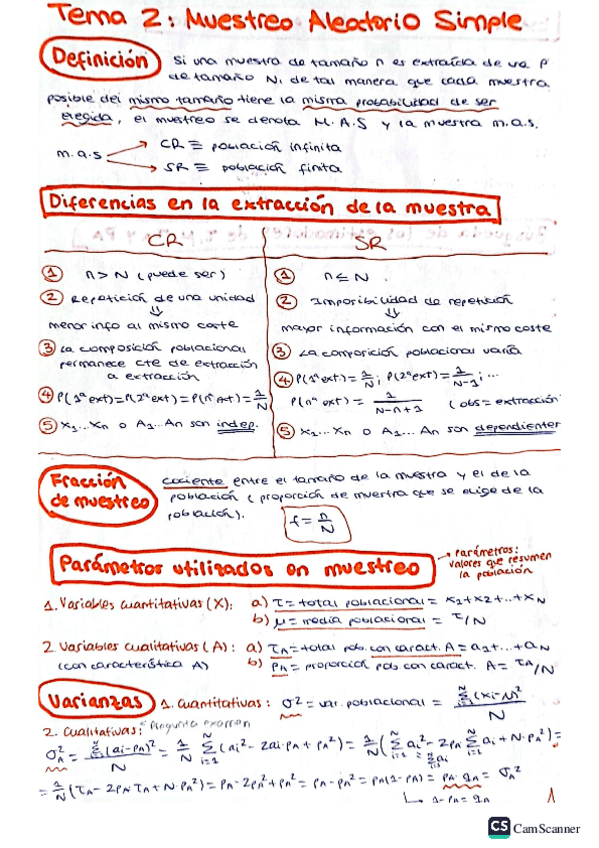 Tema 2: Muestreo Aleatorio Simple
Definición
Si una muestra de tamaño n es extraída de una P
de tamaño N, de tal manera que cada muestra
posible del mismo tamaño tiene la misma probabilidad de ser
elegida, el muestreo se denota M.A.S y la muestra m.a.s.
m.a.s
CR ≡ población infinita
SR ≡ población finita
Diferencias en la extracción de la muestra
CR
① n > N (puede ser)
② Repetición de una unidad
⇓
menor info al mismo coste
③ La composición poblacional
permanece cte de extracción
a extracción
④ P(1ª ext) = P(2ª ext) = P(nª ext) = 1/N
⑤ X1...Xn o A1...An son indep.
SR
① n ≤ N
② Imposibilidad de repetición
⇓
mayor información con el mismo coste
③ La composición poblacional varía
④ P(1ª ext) = 1/N; P(2ª ext) = 1/N-1; ...
P(nª ext) = 1/N-n+1 (obs = extracción
⑤ X1...Xn o A1...An son dependientes
Fracción
de muestreo
cociente entre el tamaño de la muestra y el de la
población (proporción de muestra que se elige de la
población).
f = n/N
Parámetros utilizados en muestreo
→ parámetros:
valores que resumen
la población
1. Variables cuantitativas (X): a) τ = total poblacional = X1+X2+...+XN
b) μ = media poblacional = τ/N
2. Variables cualitativas (A): a) τA = total pob. con caract. A = a1+...+aN
(con característica A) b) PA = proporción pob. con caract. A = τA/N
Varianzas
1. Cuantitativas: σ² = var. poblacional = Σ(Xi-μ)²/N
2. Cualitativas: * Pregunta examen
σA² = Σ(ai-PA)²/N = 1/N Σ(ai² - 2ai·PA + PA²) = 1/N (Σai² - 2PA Σai + N·PA²) =
= Σai
= 1/N (τA - 2PA·τA + N·PA²) = PA - 2PA² + PA² = PA - PA² = PA(1-PA) = PA·qA = σA²
↳ 1-PA = qA
1
CS CamScanner